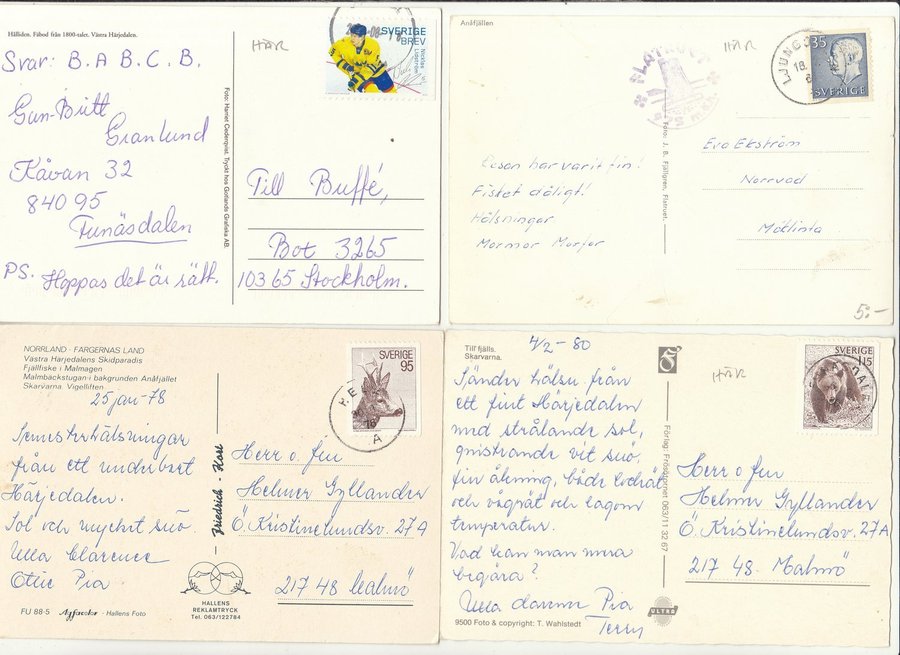 Hålliden. Fäbod från 1800-talet. Västra Härjedalen.
Svar: B. A B. C. B.
Gun-Britt
Granlund
Kåvan 32
840 95
Funäsdalen
PS. Hoppas det är rätt.
Foto: Harriet Cederqvist. Tryckt hos Gotlands Grafiska AB
HÄR
SVERIGE
BREV
Nicklas Lidström
Till Buffé,
Box 3265
103 65 Stockholm.
Anåfjällen
HÄR
FLATRUET
975 M.Ö.H.
LJUNGD
18.
35
SVERIGE
Resan har varit fin!
Fisket dåligt!
Hälsningar
Mormor Morfar
Foto: J. B. Fjällgren, Flatruet.
Eva Ekström
Norrvad
Möklinta
5:-
NORRLAND - FÄRGERNAS LAND
Västra Härjedalens Skidparadis
Fjällfiske i Malmagen
Malmbäckstugan i bakgrunden Anåfjället
Skarvarna. Vigelliften
25 jan -78
Semesterhälsningar
från ett underbart
Härjedalen.
Sol och mycket snö
Ulla Clarence
Pia
FU 88-5 Agfacolor - Hallens Foto
Friedrich - Kort
SVERIGE
95
A
Herr o. fru
Helmer Gyllander
Ö. Kristinelundsv. 27A
217 48 Malmö
HALLENS
REKLAMTRYCK
Tel. 063/122784
Till fjälls.
Skarvarna.
4/2 - 80
HÄR
SVERIGE
115
Sänder hälsn från
ett fint Härjedalen
med strålande sol,
gnistrande vit snö
fin åkning, både lodrät
och vågrät och lagom
temperatur.
Vad kan man mera
begära?
Ulla Pia
Terry
9500 Foto & copyright: T. Wahlstedt
ULTRA
Förlag: Frösötornet 063/11 32 67
Herr o. fru
Helmer Gyllander
Ö. Kristinelundsv. 27A
217 48 Malmö